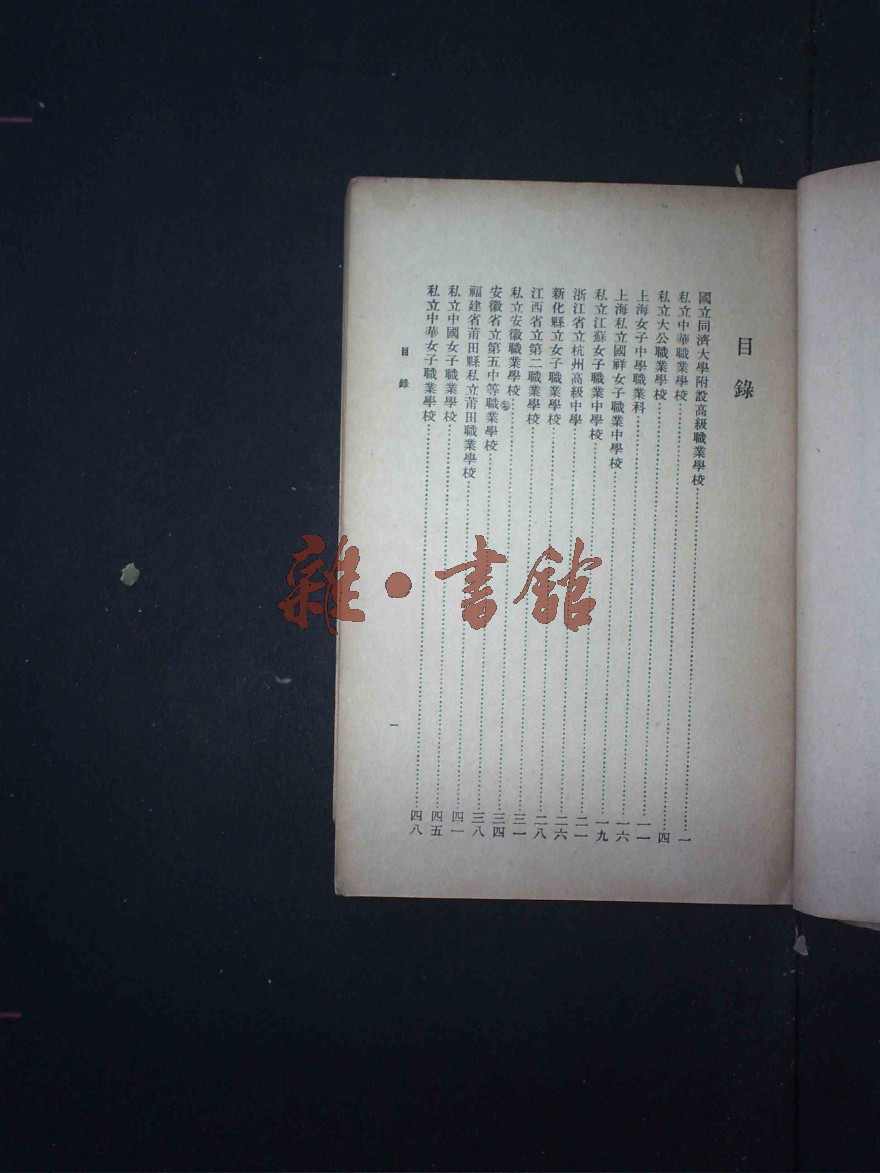 目錄
國立同濟大學附設高級職業學校……一
私立中華職業學校……四
私立大公職業學校……一一
上海女子中學職業科……一六
上海私立國祥女子職業中學校……一九
私立江蘇女子職業中學校……二一
浙江省立杭州高級中學……二六
新化縣立女子職業學校……二八
江西省立第二職業學校……三一
私立安徽職業學校……三四
安徽省立第五中等職業學校……三八
福建省莆田縣私立莆田職業學校……四一
私立中國女子職業學校……四五
私立中華女子職業學校……四八
目錄 一
雜·書館